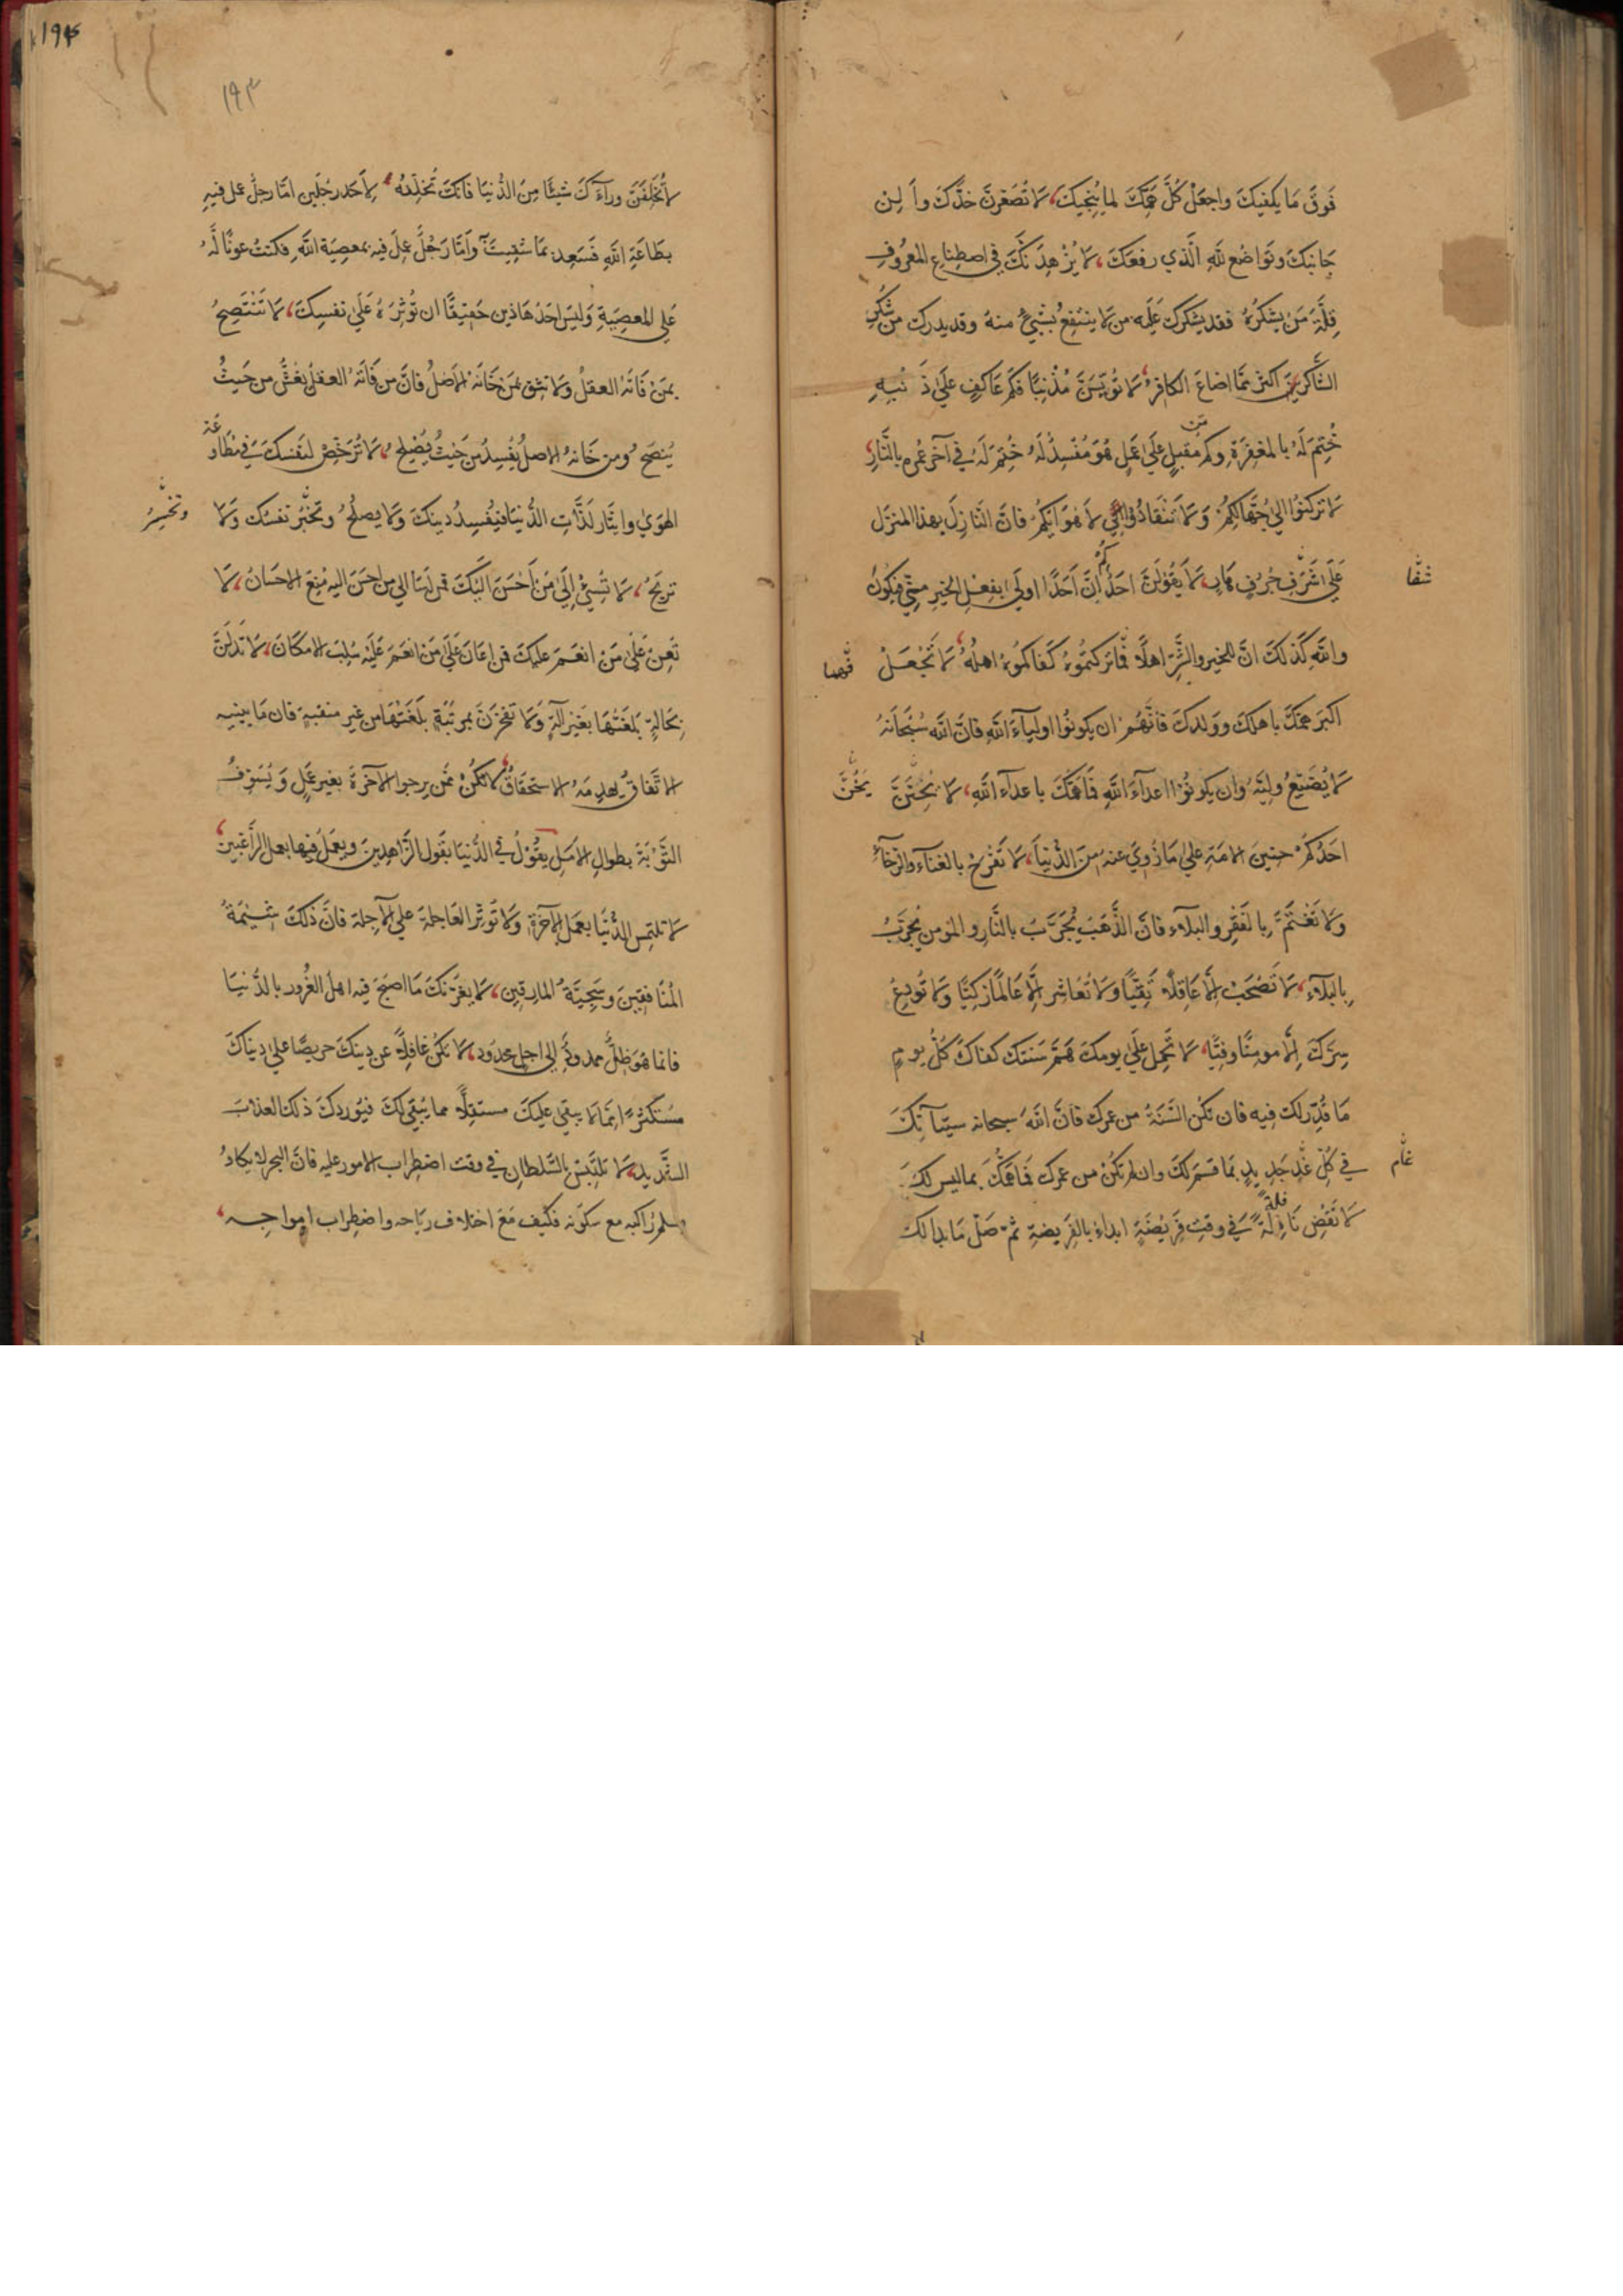 فَوقَ مَا يكفيكَ واجعَلْ كُلَّ هَمِّكَ لمايُنجيكَ، لَا تُصَعِّرَنَّ خدَّكَ وأَلِنْ
جَانبَكَ وتَواضَع للهِ الَّذي رفعَكَ، لَا يُزْهِدَنَّكَ في اصطِناعِ المعرُوفِ
قِلَّةُ مَن يشكرُهُ فقد يشكركَ عَلَيه من لَا ينتفِعُ بشيءٍ منهُ وقد يدركُ من شُكرِ
الشَّاكرينَ اكثرَ مَّما اضاعَ الكافِرُ، لَا تُويِسَنَّ مُذْنِبًا فكَم عَاكِفٍ عَلَى ذَنبِهِ
خُتِمَ لَهُ بالمغفِرَةِ وكم مُقبلٍ عَلَى عَمَلٍ هُوَ مُفْسِدٌ لَهُ خُتِمَ لَهُ في آخر عُمرِهِ بالنَّارِ،
لَا تركنُوا الي جُهَّالِكُم وَلَا تنقَادُوا لِاهْوَائِكُم فانَّ النَّازِلَ بهذا المنزِل
عَلَى شَرَفِ جُرُفٍ هَارٍ، لَا يقُولَنَّ احَدُكُم انَّ اَحَدًا اولَي بفِعْلِ الخيرِ منّي فيكُونُ
شفَا
واللهِ كَذلكَ انَّ للخيرِ والشَّرِّ اهلًا فمَا تركتموُهُ كَفَاكمُوهُ اهلُهُ، لَا تَجْعَلْ
اكبَرَ همّكَ باهلكَ ووَلدِكَ فانَّهُم ان يكونُوا اولياءَ اللهِ فانَّ اللهَ سُبْحَانَهُ
لَا يُضَيِّعُ وليَّهُ وان يكونُوا اعداءَ اللهِ فَمَا هَمُّكَ باعداءِ اللهِ، لَا يَحِنَّنَّ
احَدُكُم حنينَ الامَةِ علي مَا زُويَ عنهُ مِنَ الدُّنيَا، لَا تَفْرَحْ بالغناءِ والرَّخاءِ
وَلَا تَغْتَمَّ بالفَقْرِ والبلاءِ فانَّ الذَّهَبَ يُجَرَّبُ بالنَّارِ والمؤمن يُجرَّبُ
بِالبَلَاءِ، لَا تَصْحَبْ الَّا عَاقِلًا تَقِيًّا وَلَا تُعَاشِر الَّا عَالمًا زكيًّا وَلَا تُودِعْ
سِرَّكَ الَّا مومِنًا وفيًّا، لَا تحمِل عَلَى يومِكَ هَمَّ سَنَتكَ كفاكَ كُلُّ يومٍ
مَا قُدِّرَ لكَ فيه فان تكُن السَّنَةُ من عمركَ فانَّ اللهَ سبحانه سيَاتيكَ
في كلِّ غَدٍ جَدِيدٍ بمَا قسَمَ لكَ وان لم تكُنْ من عمركَ فمَا همُّكَ بما ليس لكَ
لَا تَقْضِ نَافِلَةً في وقتِ فَريضَةٍ ابدأ بالفَريضةِ ثمّ صَلّ مَا بدا لكَ
لَا تُخَلِّفَنَّ وراءَكَ شيئًا مِنَ الدُّنيَا فانكَ تُخلِّفُهُ لِاَحَدِ رجُلَين امَّا رجلٌ عمل فيهِ
بطَاعَةِ اللهِ فَسَعِدَ بمَا شَقِيتَ وامَّا رَجُلٌ عمِلَ فيه بمعصِيَةِ اللهِ فكنتَ عونًا لَهُ
عَلي المعصِيَةِ وَليسَ احَدُ هَاذين حَقيقًا ان تُوثِرَهُ عَلَي نفسِكَ، لَا تَنْتَصِحْ
بمَنْ فَاتَهُ العقلُ وَلا تثِق بمَن خَانَهُ الاصْلُ فانَّ من فَاتَهُ العقلُ يغشُّ من حَيثُ
يَنصَحُ ومن خَانَهُ الاصلُ يفسِدُ من حَيْثُ يُصْلِحُ، لَا تُرَخِّصْ لنَفسِكَ في مُطَاوَعَة
الهَوَي وايثَار لَذَّاتِ الدُّنيَا فيُفْسِدُ دينكَ وَلَا يصلحُ وتخْسَرُ نفسُكَ وَلَا
وتخسِرُ
تربَحُ، لَا تُسِيءْ إلَى مَنْ أَحْسَنَ الَيْكَ فمن اسَا الي من احسَنَ اليهِ مُنِعَ الاحسَانُ، لَا
تَعِنْ عَلَى مَنْ انعَمَ عليكَ فمن اعَانَ عَلَى مَن انعَمَ عَلَيهِ سُلِبَ الامكَانَ، لَا تَدُلَّنَّ
بحَالةٍ بَلَغْتَهَا بغَيْرِ آلةٍ وَلَا تفخرَنَّ بمرتَبَةٍ بلَغْتَهَا من غير منقبةٍ فان مَا يبنيهِ
الاتِّفاقُ يهدِمهُ الاستحقَاقُ، لَا تكُنْ ممَّن يرجوا الآخرةَ بغير عَمَلٍ وَيُسَوِّفُ
التَّوْبَةَ بطولِ الامَلِ يقُوْلُ في الدُّنيَا بقَولِ الزَّاهِدِينَ ويعمَلُ فيها بعمل الرَّاغبينَ،
لَا تلتمِسِ الدُّنْيَا بعَمَلِ الآخرةِ، وَلَا تُوثِر العَاجلَةَ علي الآجِلة فانَّ ذلكَ شيمَةُ
المُنَافقِينَ وسَجِيَّةُ المارقِينِ، لَا يغُرَّنكَ مَا اصبَحَ فيه اهل الغُرُورِ بالدُّنيَا
فانما هُوَ ظِلٌّ ممدودٌ الي اجلٍ محدودٍ، لَا تكُنْ غَافِلًا عن دينكَ حريصًا علي دنياكَ
مستكثرًا ممَّا لَا يبقي عليكَ مستقلًّا مما يبْقي لكَ فيُوردكَ ذلكَ العذابَ
الشَّديد، لَا تلتَبِسْ بالسُّلطَانِ في وقت اضطِرابِ الامورِ عليهِ فانَّ البحرَ لا يكَادُ
يسلمُ راكبه مع سكونه فكَيف مَعَ اختلاف رياحه واضطِراب امواجه،